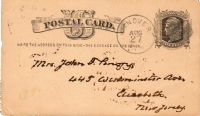 POSTAL CARD.
WRITE THE ADDRESS ON THIS SIDE - THE MESSAGE ON THE OTHER
AUG
27
Mrs. John F.
445 Westminster Ave.
Elizabeth
New Jersey.